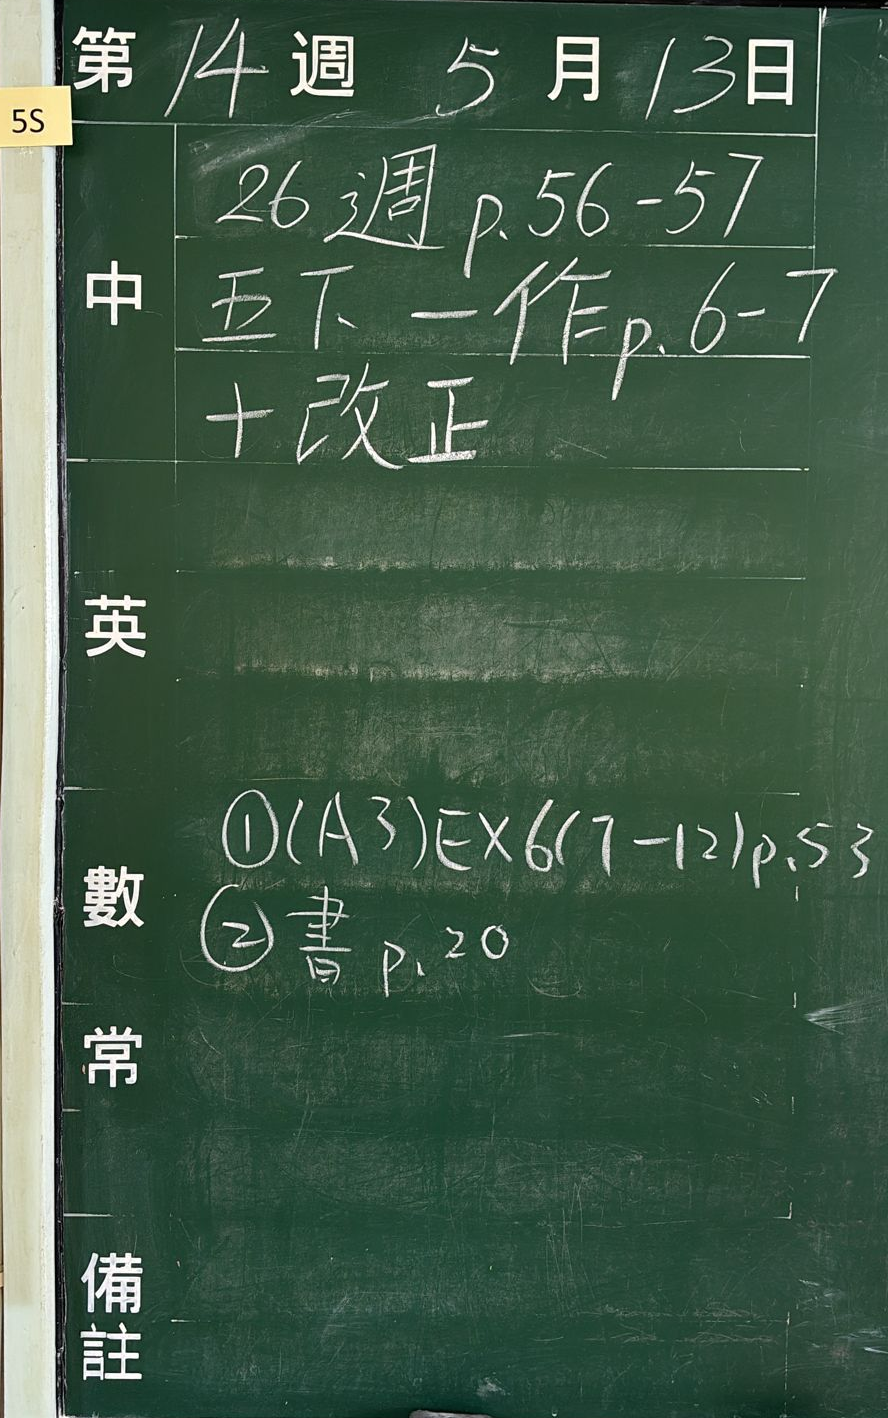 第 14 週 5 月 13 日
5S
26 週 p. 56 - 57
中
五下 一作 p. 6 - 7
+ 改正
英
①(A3)EX6(7-12)p.53
數
② 書 p. 20
常
備註